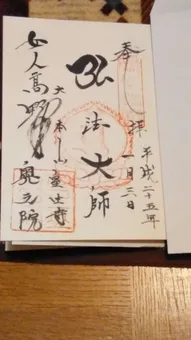 奉拝
平成二十五年
一月三日
弘法大師
女人高野
大本山室生寺
奥之院